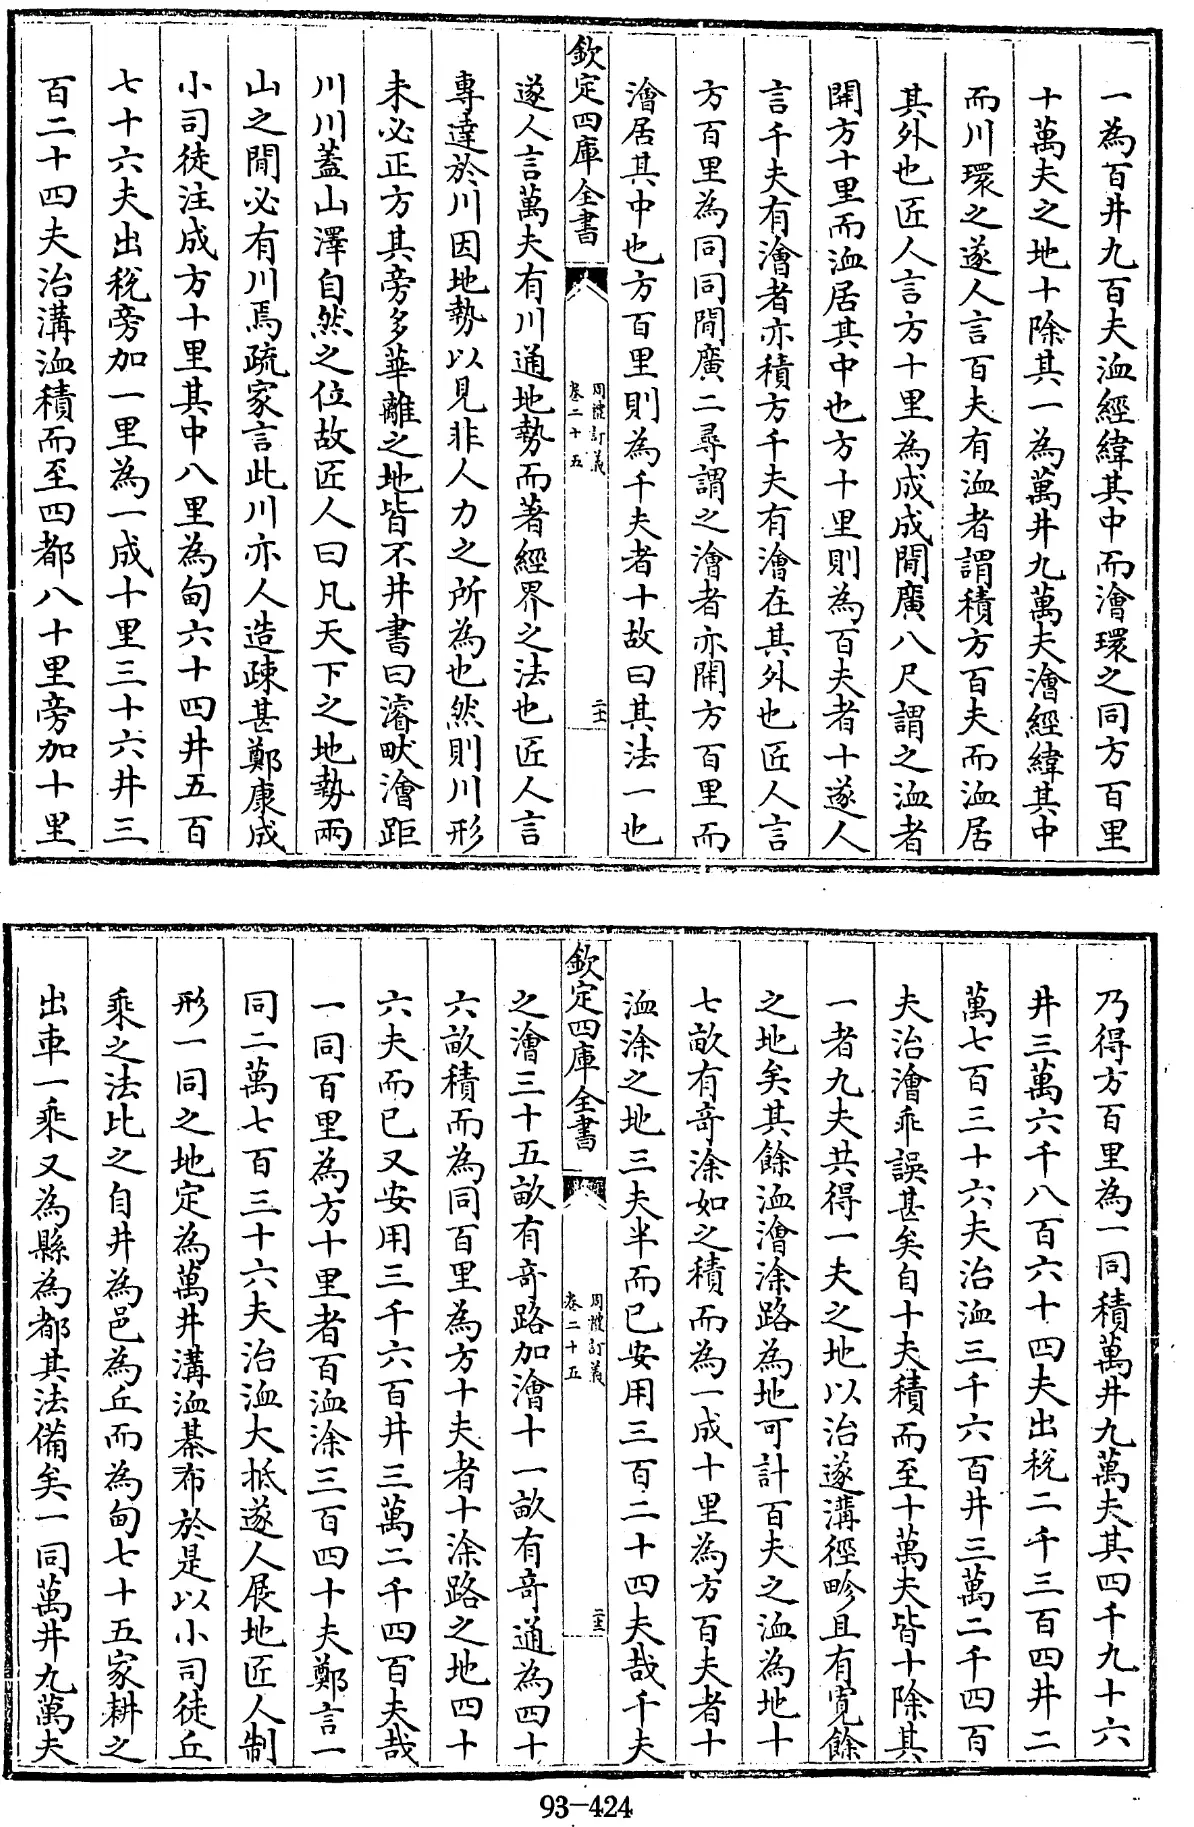 一為百井九百夫洫經緯其中而澮環之同方百里
十萬夫之地十除其一為萬井九萬夫澮經緯其中
而川環之遂人言百夫有洫者謂積方百夫而洫居
其外也匠人言方十里為成成間廣八尺謂之洫者
開方十里而洫居其中也方十里則為百夫者十遂人
言千夫有澮者亦積方千夫有澮在其外也匠人言
方百里為同同間廣二尋謂之澮者亦開方百里而
澮居其中也方百里則為千夫者十故曰其法一也
欽定四庫全書
周禮訂義
卷二十五
二十一
遂人言萬夫有川通地勢而著經界之法也匠人言
專達於川因地勢以見非人力之所為也然則川形
未必正方其旁多華離之地皆不井書曰濬畎澮距
川川蓋山澤自然之位故匠人曰凡天下之地勢兩
山之間必有川焉疏家言此川亦人造疎甚鄭康成
小司徒注成方十里其中八里為甸六十四井五百
七十六夫出稅旁加一里為一成十里三十六井三
百二十四夫治溝洫積而至四都八十里旁加十里
乃得方百里為一同積萬井九萬夫其四千九十六
井三萬六千八百六十四夫出稅二千三百四井二
萬七百三十六夫治洫三千六百井三萬二千四百
夫治澮乖誤甚矣自十夫積而至十萬夫皆十除其
一者九夫共得一夫之地以治遂溝徑畛且有寛餘
之地矣其餘洫澮涂路為地可計百夫之洫為地十
七畝有奇涂如之積而為一成十里為方百夫者十
洫涂之地三夫半而已安用三百二十四夫哉千夫
欽定四庫全書
周禮訂義
卷二十五
二十二
之澮三十五畝有奇路加澮十一畝有奇通為四十
六畝積而為同百里為方十夫者十涂路之地四十
六夫而已又安用三千六百井三萬二千四百夫哉
一同百里為方十里者百洫涂三百四十夫鄭言一
同二萬七百三十六夫治洫大抵遂人展地匠人制
形一同之地定為萬井溝洫棊布於是以小司徒丘
乘之法比之自井為邑為丘而為甸七十五家耕之
出車一乘又為縣為都其法備矣一同萬井九萬夫
93-424